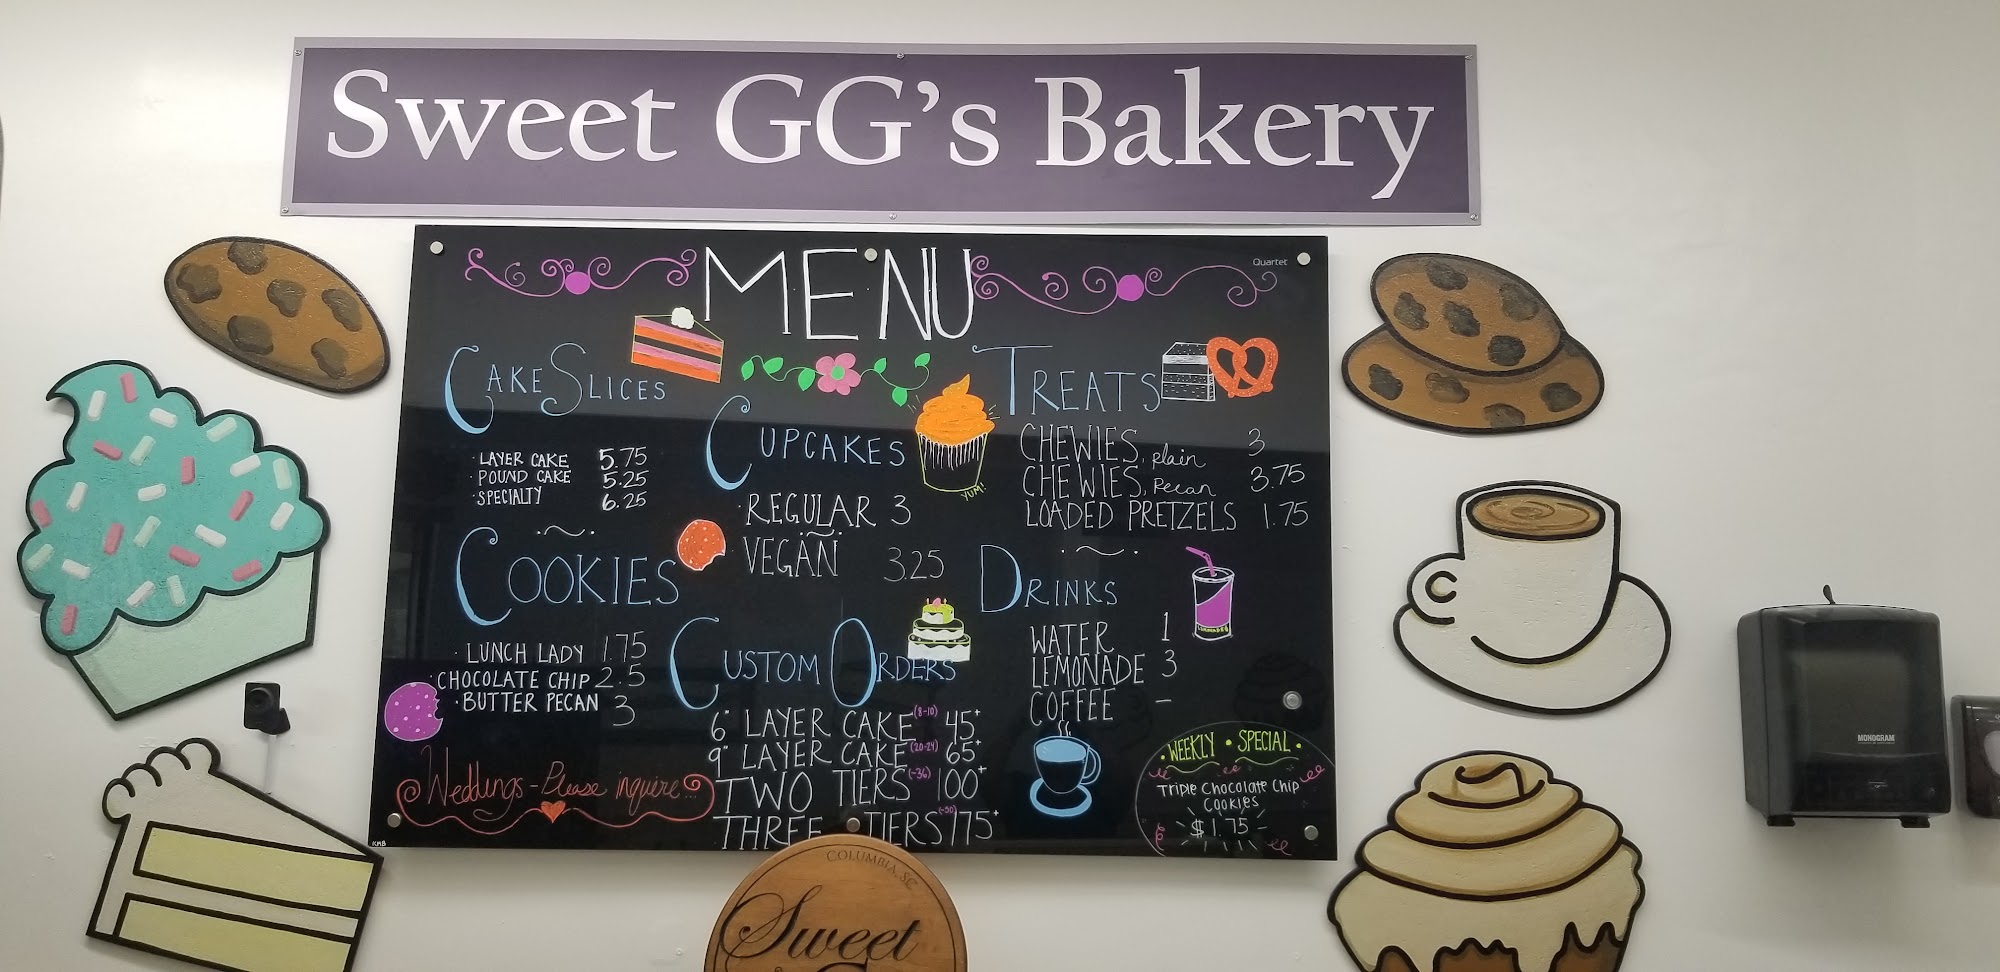 Sweet GG's Bakery
Quartet
MENU
CAKE SLICES
· LAYER CAKE 5.75
· POUND CAKE 5.25
· SPECIALTY 6.25
COOKIES
· LUNCH LADY 1.75
· CHOCOLATE CHIP 2.5
· BUTTER PECAN 3
Weddings - Please inquire...
KMB
CUPCAKES
YUM!
· REGULAR 3
· VEGAN 3.25
CUSTOM ORDERS
6" LAYER CAKE (8-10) 45+
9" LAYER CAKE (20-24) 65+
TWO TIERS (-36) 100+
THREE TIERS (-50) 175+
TREATS
CHEWIES, plain 3
CHEWIES, Pecan 3.75
LOADED PRETZELS 1.75
DRINKS
WATER 1
LEMONADE 3
COFFEE -
· WEEKLY · SPECIAL ·
Triple Chocolate Chip
Cookies
$1.75
COLUMBIA, SC
Sweet
MONOGRAM